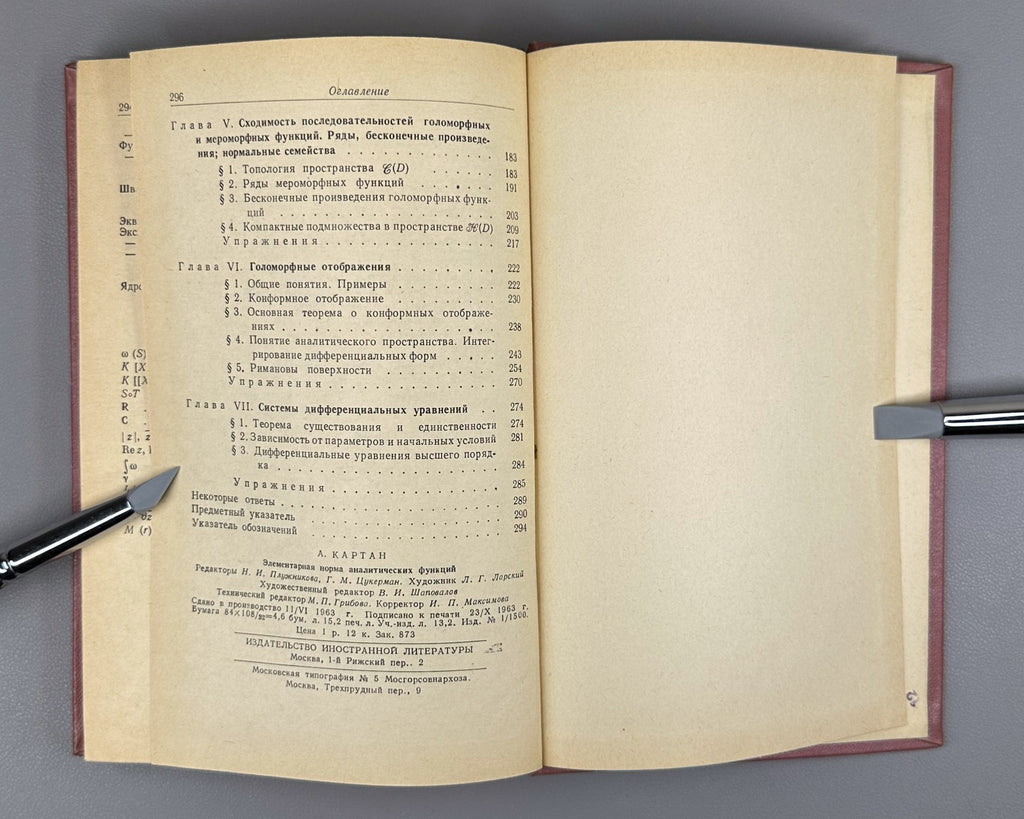 296
Оглавление
Глава V. Сходимость последовательностей голоморфных
и мероморфных функций. Ряды, бесконечные произведе-
ния; нормальные семейства . . . . . . . . . . . . 183
§ 1. Топология пространства 𝒞(D) . . . . . . 183
§ 2. Ряды мероморфных функций . . . . . . 191
§ 3. Бесконечные произведения голоморфных функ-
ций . . . . . . . . . . . . . . . . . 203
§ 4. Компактные подмножества в пространстве ℋ(D) 209
Упражнения . . . . . . . . . . . . . . 217
Глава VI. Голоморфные отображения . . . . . . . . . 222
§ 1. Общие понятия. Примеры . . . . . . . . 222
§ 2. Конформное отображение . . . . . . . . 230
§ 3. Основная теорема о конформных отображе-
ниях . . . . . . . . . . . . . . . . . 238
§ 4. Понятие аналитического пространства. Интег-
рирование дифференциальных форм . . . . . 243
§ 5. Римановы поверхности . . . . . . . . . 254
Упражнения . . . . . . . . . . . . . . 270
Глава VII. Системы дифференциальных уравнений . . 274
§ 1. Теорема существования и единственности 274
§ 2. Зависимость от параметров и начальных условий 281
§ 3. Дифференциальные уравнения высшего поряд-
ка . . . . . . . . . . . . . . . . . . 284
Упражнения . . . . . . . . . . . . . . 285
Некоторые ответы . . . . . . . . . . . . . . . . . 289
Предметный указатель . . . . . . . . . . . . . . . 290
Указатель обозначений . . . . . . . . . . . . . . . 294
А. КАРТАН
Элементарная норма аналитических функций
Редакторы Н. И. Плужникова, Г. М. Цукерман. Художник Л. Г. Ларский
Художественный редактор В. И. Шаповалов
Технический редактор М. П. Грибова. Корректор И. П. Максимова
Сдано в производство 11/VI 1963 г. Подписано к печати 23/X 1963 г.
Бумага 84×108/32=4,6 бум. л. 15,2 печ. л. Уч.-изд. л. 13,2. Изд. № 1/1500.
Цена 1 р. 12 к. Зак. 873
ИЗДАТЕЛЬСТВО ИНОСТРАННОЙ ЛИТЕРАТУРЫ
Москва, 1-й Рижский пер., 2
Московская типография № 5 Мосгорсовнархоза.
Москва, Трехпрудный пер., 9
ω (S)
K [X
K [[X
S∘T
R .
C .
|z|, z
Re z, I
∫ω
M (r)